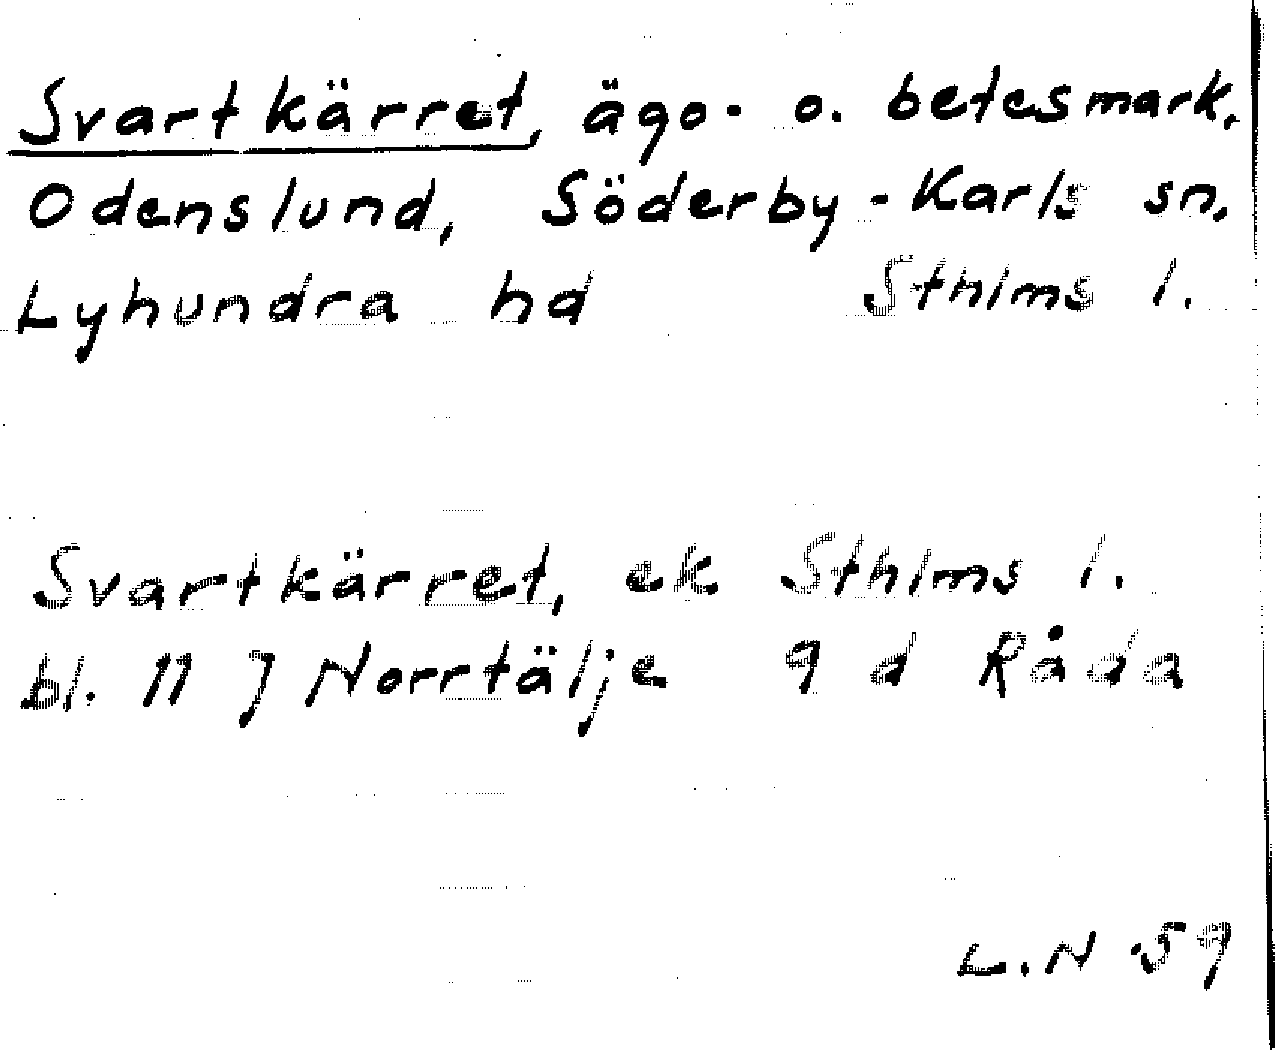 Svartkärret, ägo- o. betesmark,
Odenslund, Söderby-Karls sn,
Lyhundra hd Sthlms l.
Svartkärret, ek Sthlms l.
bl. 11 J Norrtälje 9 d Råda
L.N 59